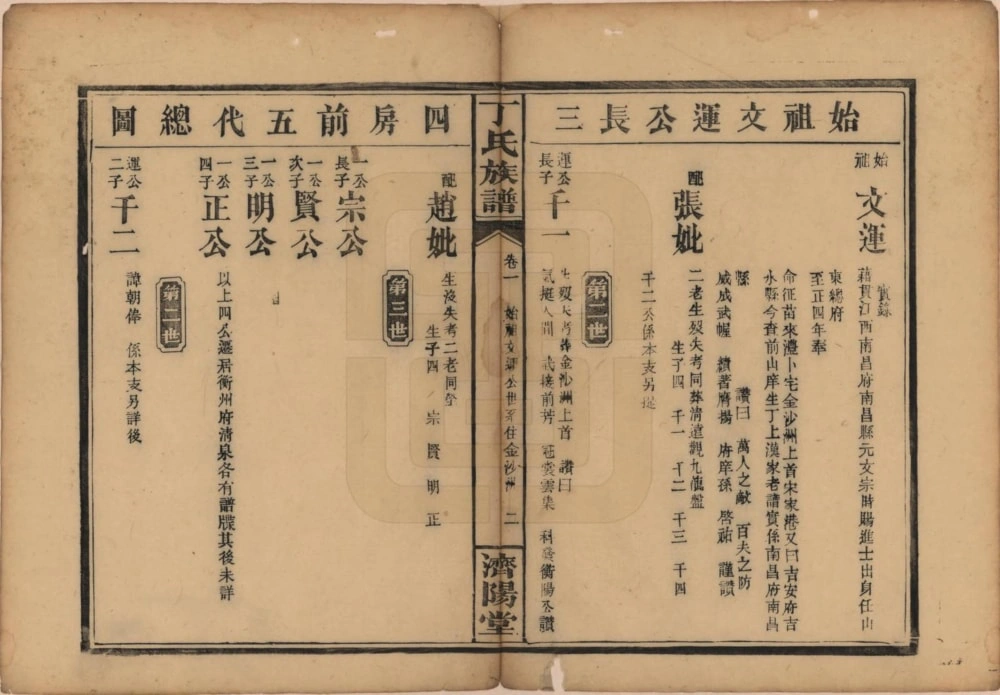 始祖文運公長三
始祖
文運
實錄
藉貫江西南昌府南昌縣元文宗時賜進士出身任山
東總府
至正四年奉
命征苗來澧卜宅金沙洲上首宋家港又曰吉安府吉
水縣今查前山庠生丁上漢家老譜實係南昌府南昌
縣
讚曰 萬人之敵 百夫之防
威成武幄 續著鷹揚 府庠孫 啓祐 謹讚
配
張妣
二老生歿失考同葬清遠觀九龍盤
生子四 千一 千二 千三 千四
千二公係本支另提
第二世
運公長子
千一
生歿失考葬金沙洲上首 讚曰
氣挺人間 武接前芳 冠裳雲集 衡陽公讚
丁氏族譜
卷一 始祖文運公世系住金沙洲 二
濟陽堂
四房前五代總圖
配
趙妣
生沒失考二老同塋
生子四 宗 賢 明 正
第三世
一公長子
宗公
一公次子
賢公
一公三子
明公
一公四子
正公
以上四公遷居衡州府清泉各有譜牒其後未詳
第二世
運公二子
千二
諱朝俸 係本支另詳後